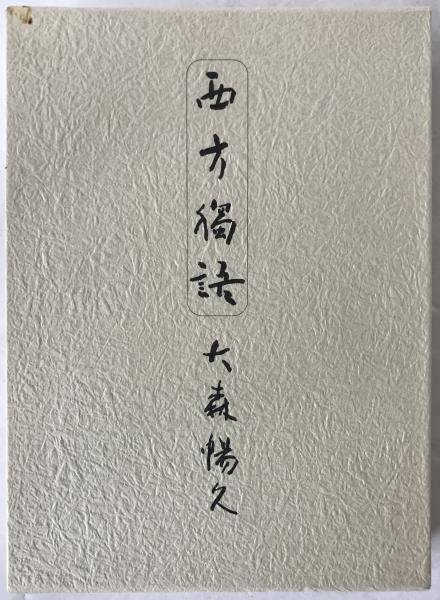 西方獨語
大森暢久